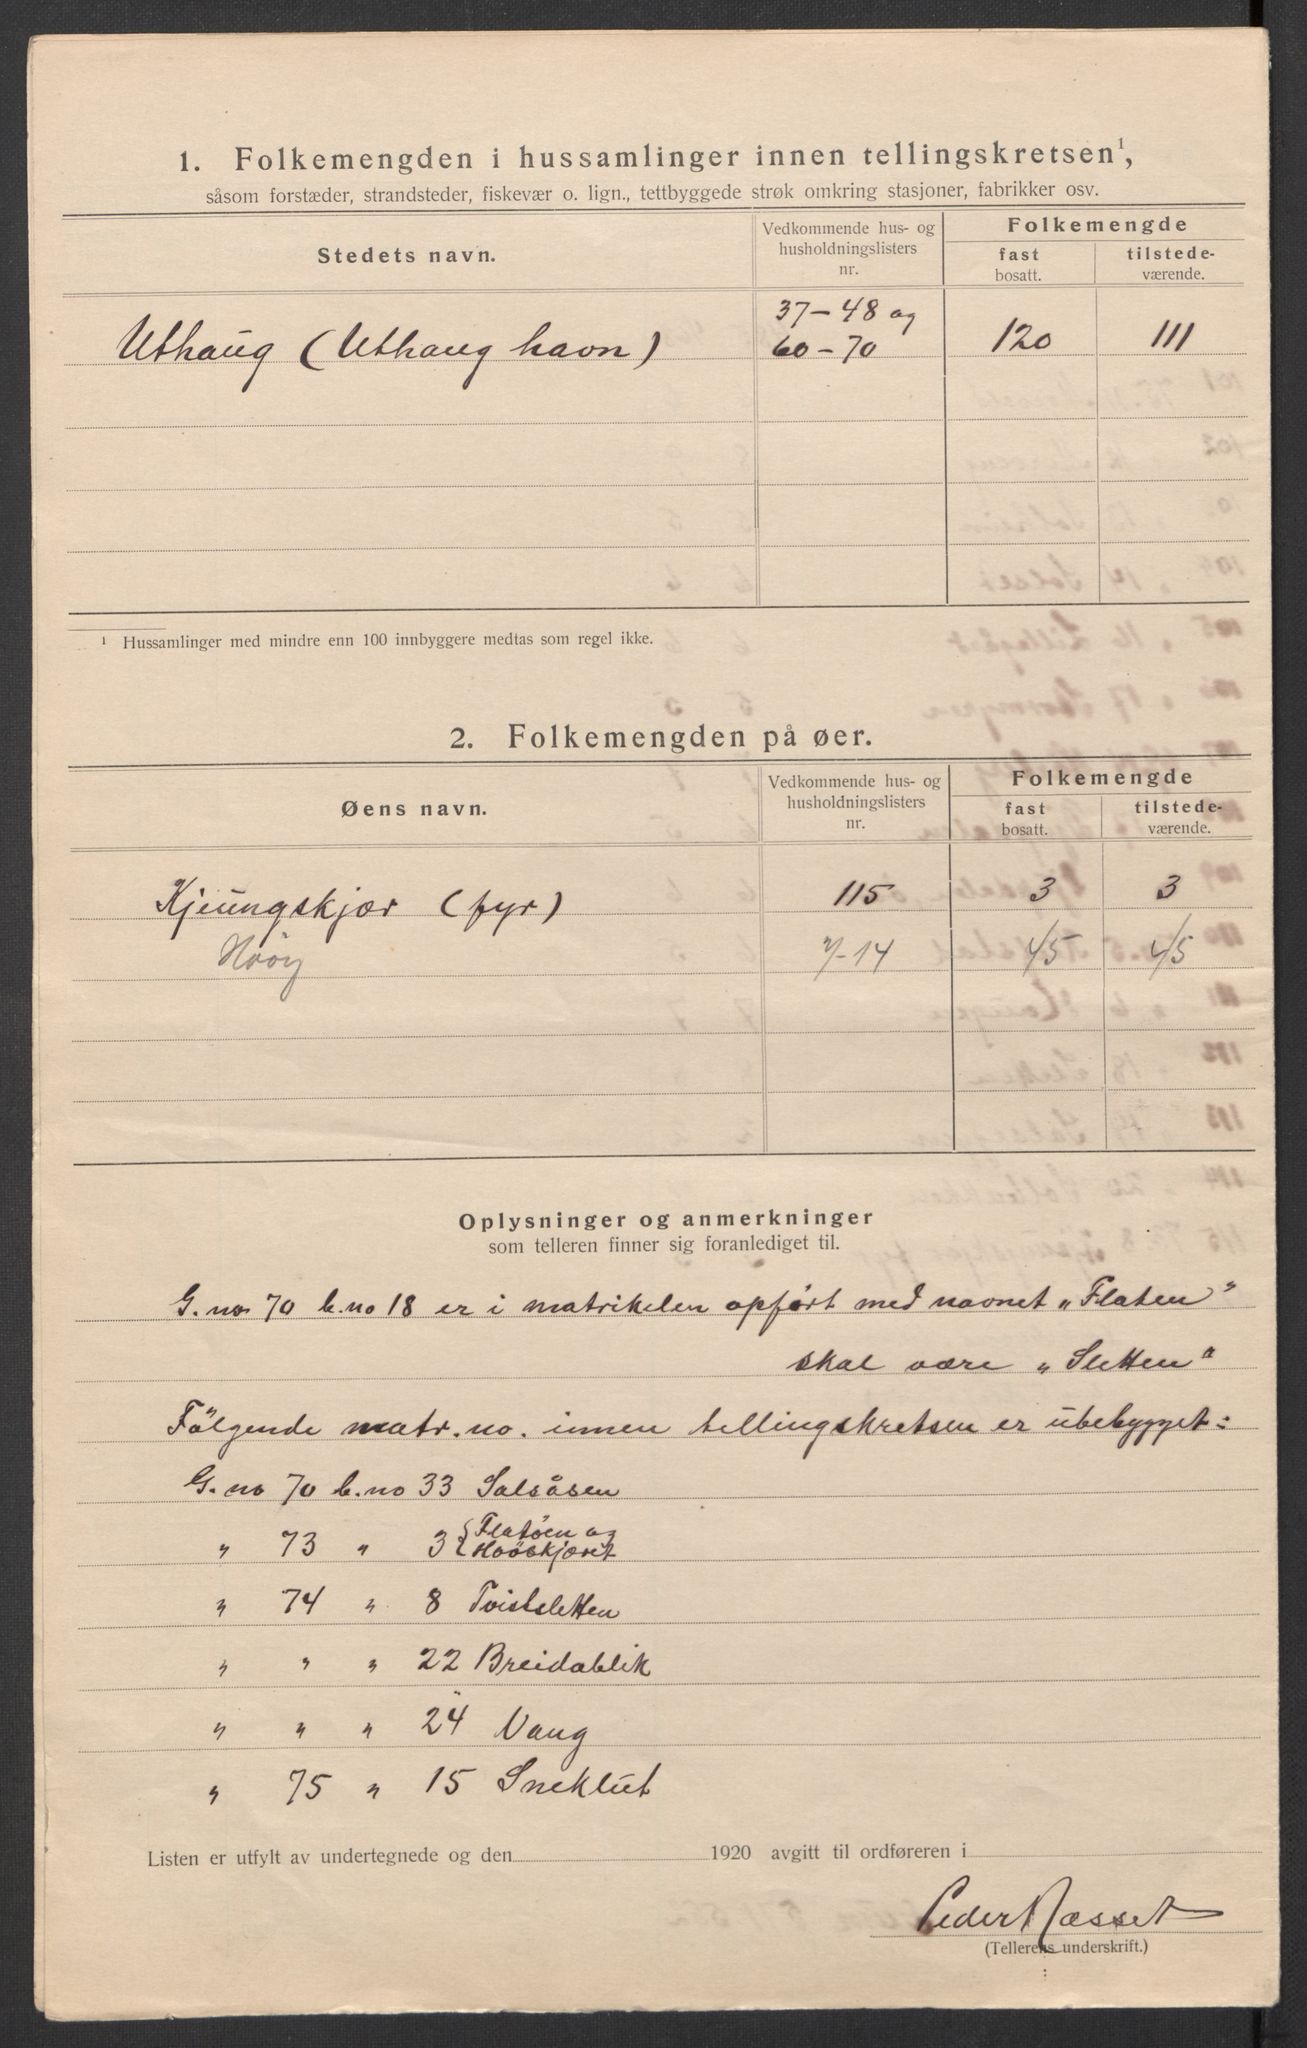 1. Folkemengden i hussamlinger innen tellingskretsen¹,
såsom forstæder, strandsteder, fiskevær o. lign., tettbyggede strøk omkring stasjoner, fabrikker osv.
Stedets navn. Vedkommende hus- og husholdningslisters nr. Folkemengde
fast bosatt. tilstede-værende.
Uthaug (Uthaug havn) 37-48 og 60-70 120 111
¹ Hussamlinger med mindre enn 100 innbyggere medtas som regel ikke.
2. Folkemengden på øer.
Øens navn. Vedkommende hus- og husholdningslisters nr. Folkemengde
fast bosatt. tilstede-værende.
Kjeungskjær (fyr) 115 3 3
14 45 45
Oplysninger og anmerkninger
som telleren finner sig foranlediget til.
G. no 70 b. no 18 er i matrikelen opført med navnet "Flaten"
skal være "Sletten"
Følgende matr. no. innen tellingskretsen er ubebygget:
G. no 70 b. no 33 Salsåsen
" 73 " 3 { Flatöen og
Hoöskjæret
" 74 " 8 Tvistsletten
" " " 22 Breidablik
" " " 24 Vang
" 75 " 15 Sneklut
Listen er utfylt av undertegnede og den 1920 avgitt til ordføreren i
Peder Næsset
(Tellerens underskrift.)